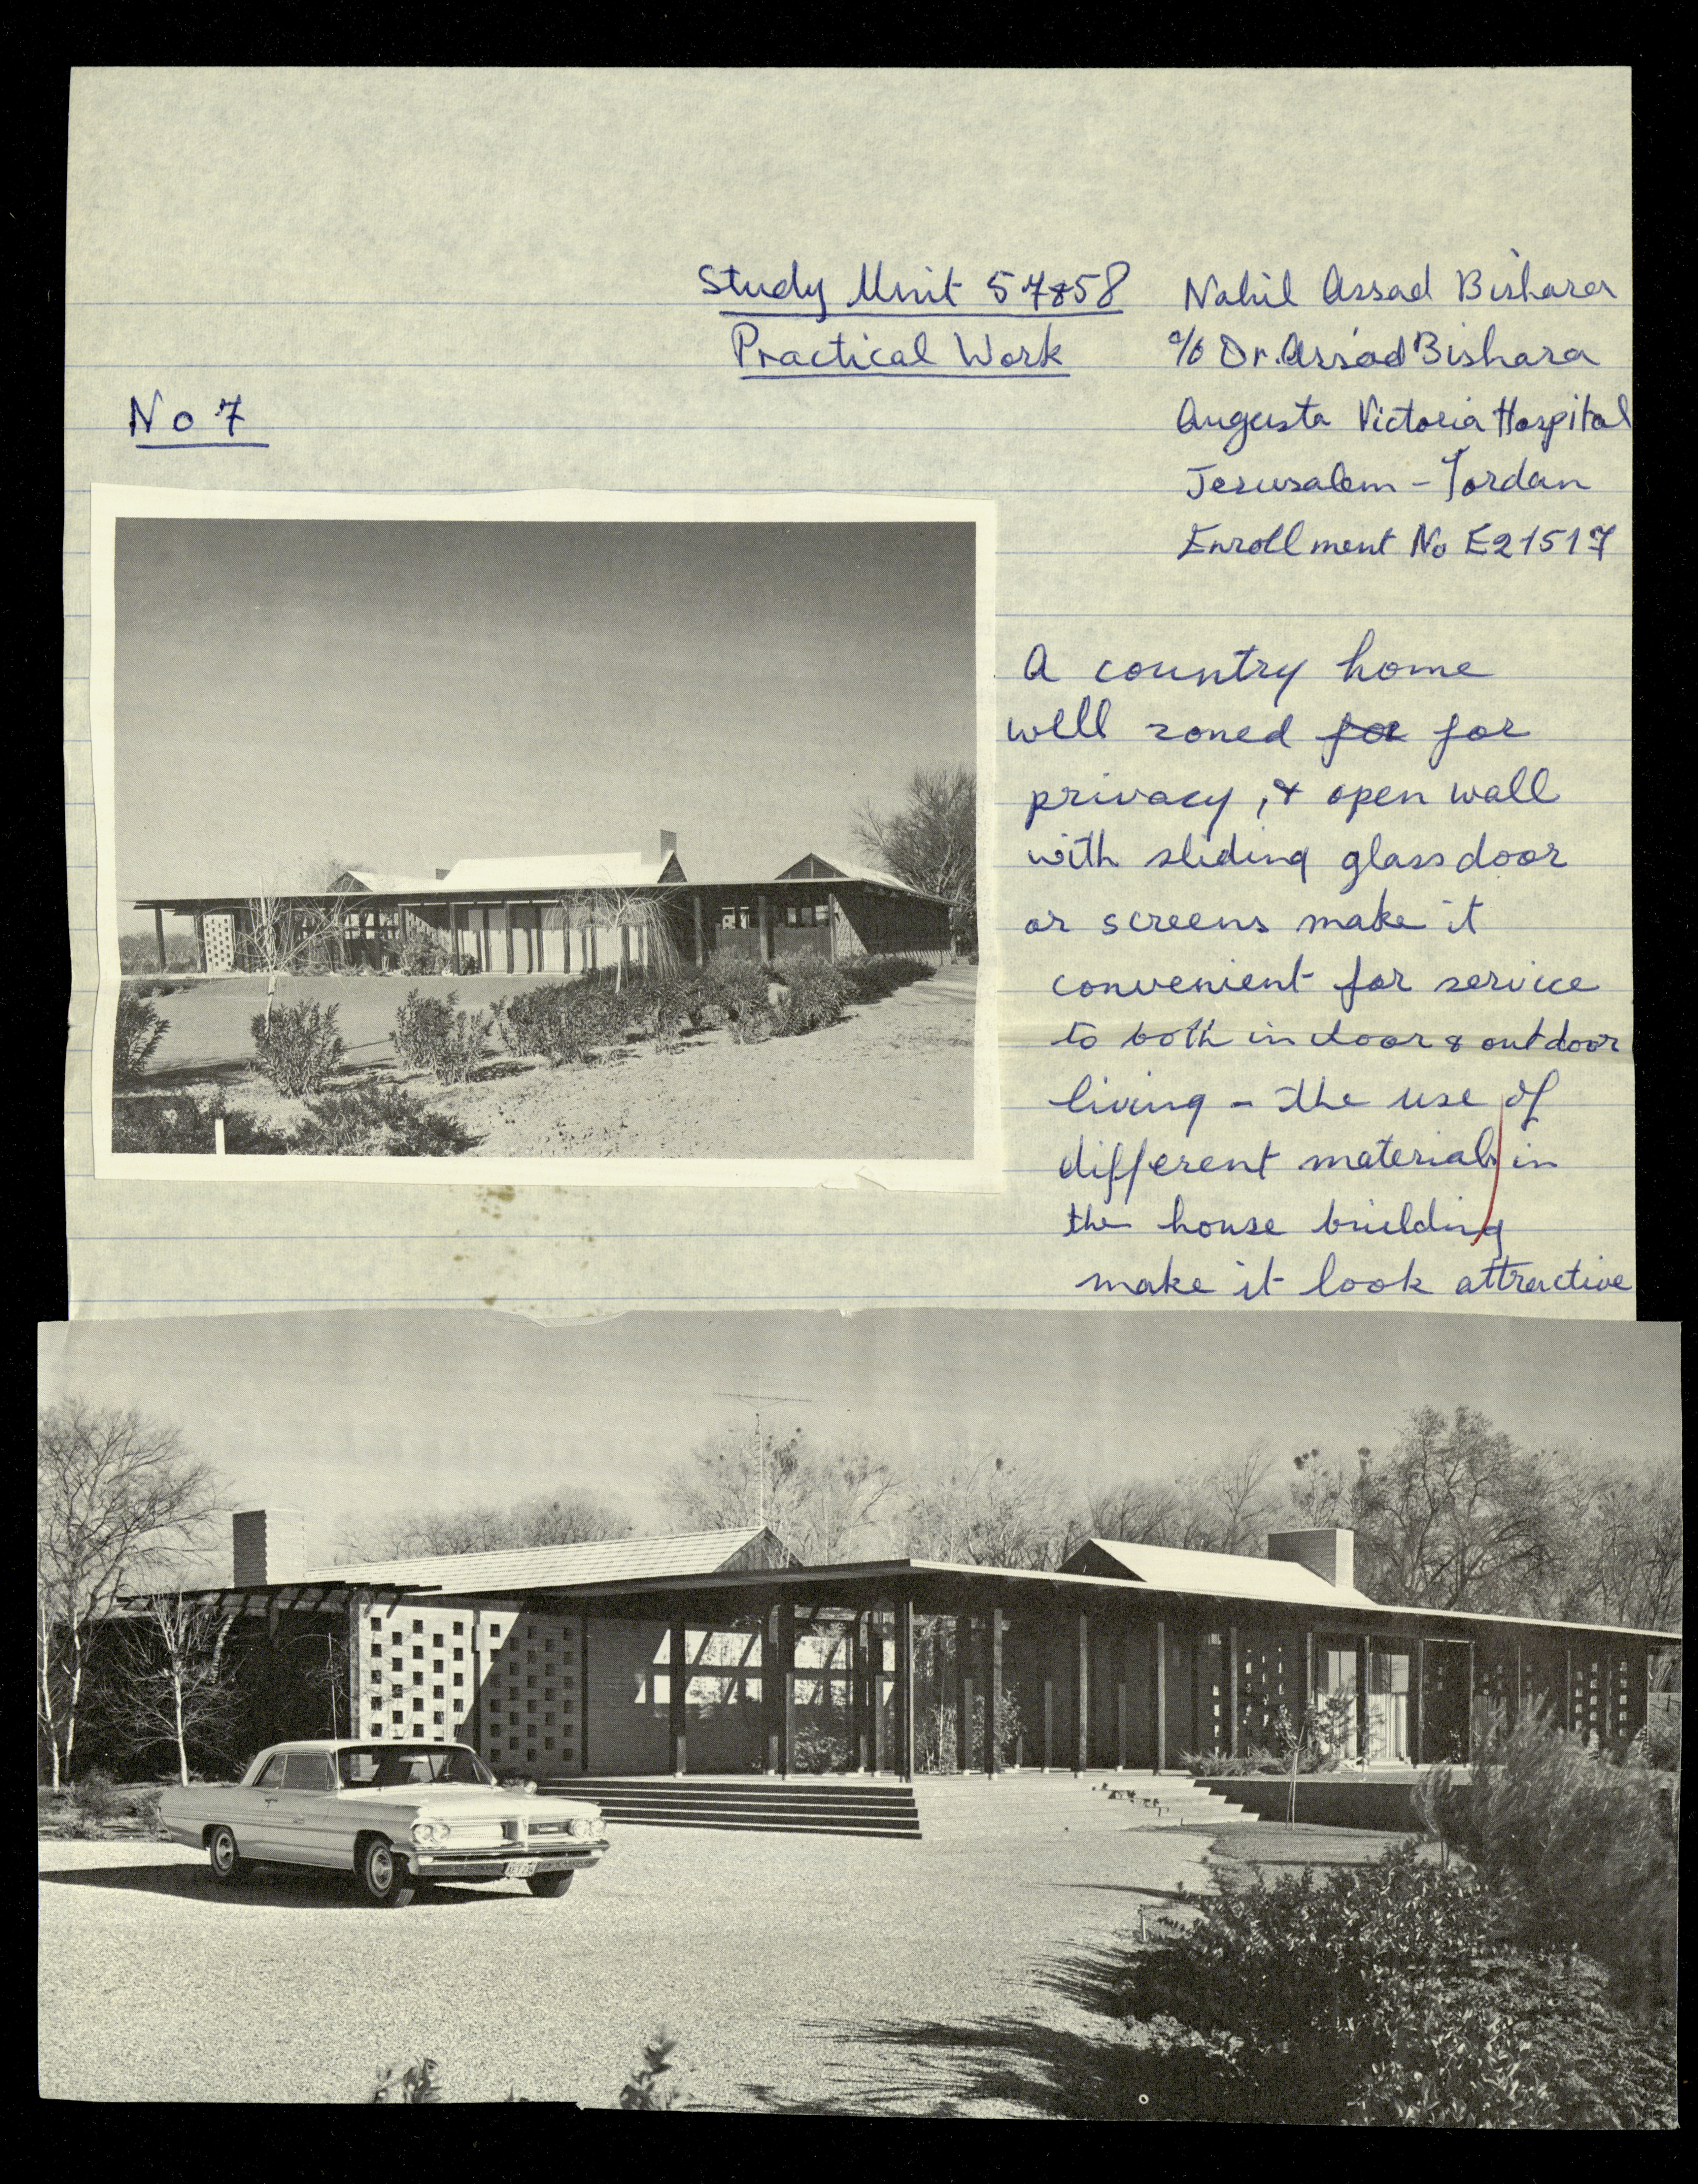 Study Unit 57&58
Practical Work
No 7
Nahil Assad Bishara
c/o Dr. Assad Bishara
Augusta Victoria Hospital
Jerusalem - Jordan
Enrollment No E21517
A country home
well zoned for for
privacy, & open wall
with sliding glass door
or screens make it
convenient for service
to both indoor & outdoor
living - the use of
different materials in
the house building
make it look attractive